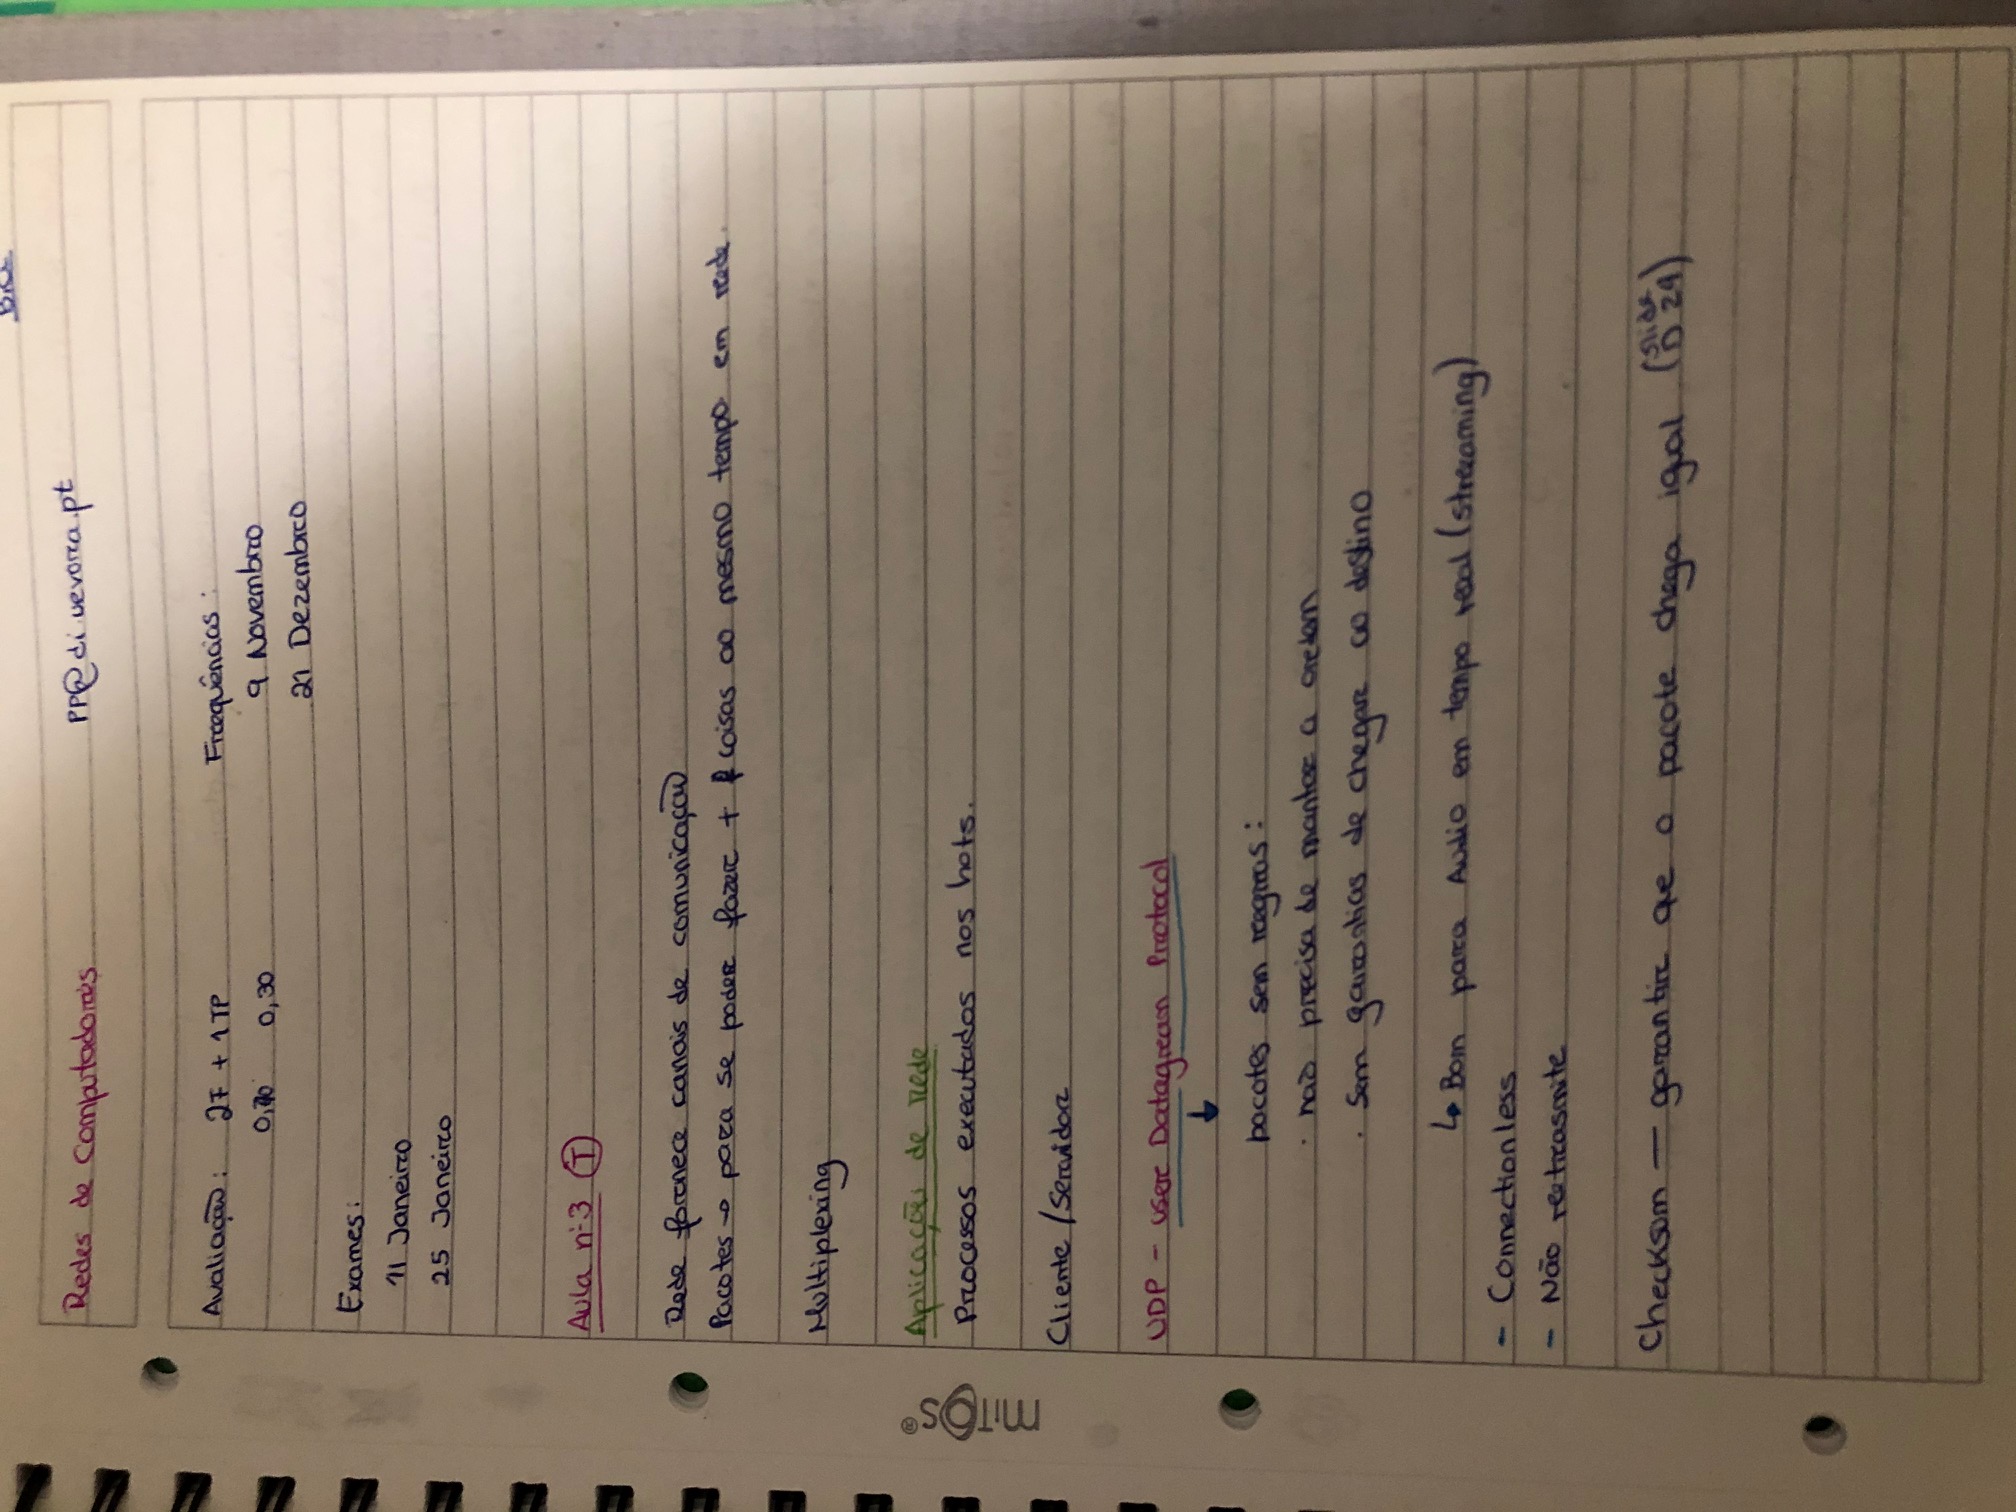 Redes de Computadores
pp@di.uevora.pt
Avaliação: 2F + 1TP
0,70 0,30
Frequências:
9 Novembro
21 Dezembro
Exames:
11 Janeiro
25 Janeiro
Aula nº3 (T)
Rede fornece canais de comunicação
Pacotes → para se poder fazer + coisas ao mesmo tempo em rede.
Multiplexing
Aplicações de rede
Processos executados nos hots.
mitos®
Cliente/Servidor
UDP - User Datagram Protocol
↓
pacotes sem regras:
· não precisa de manter a ordem
· Sem garantias de chegar ao destino
↳ Bom para Audio em tempo real (streaming)
- Connectionless
- Não retrasmite
Checksum — garantir que o pacote chega igual (slide
24)